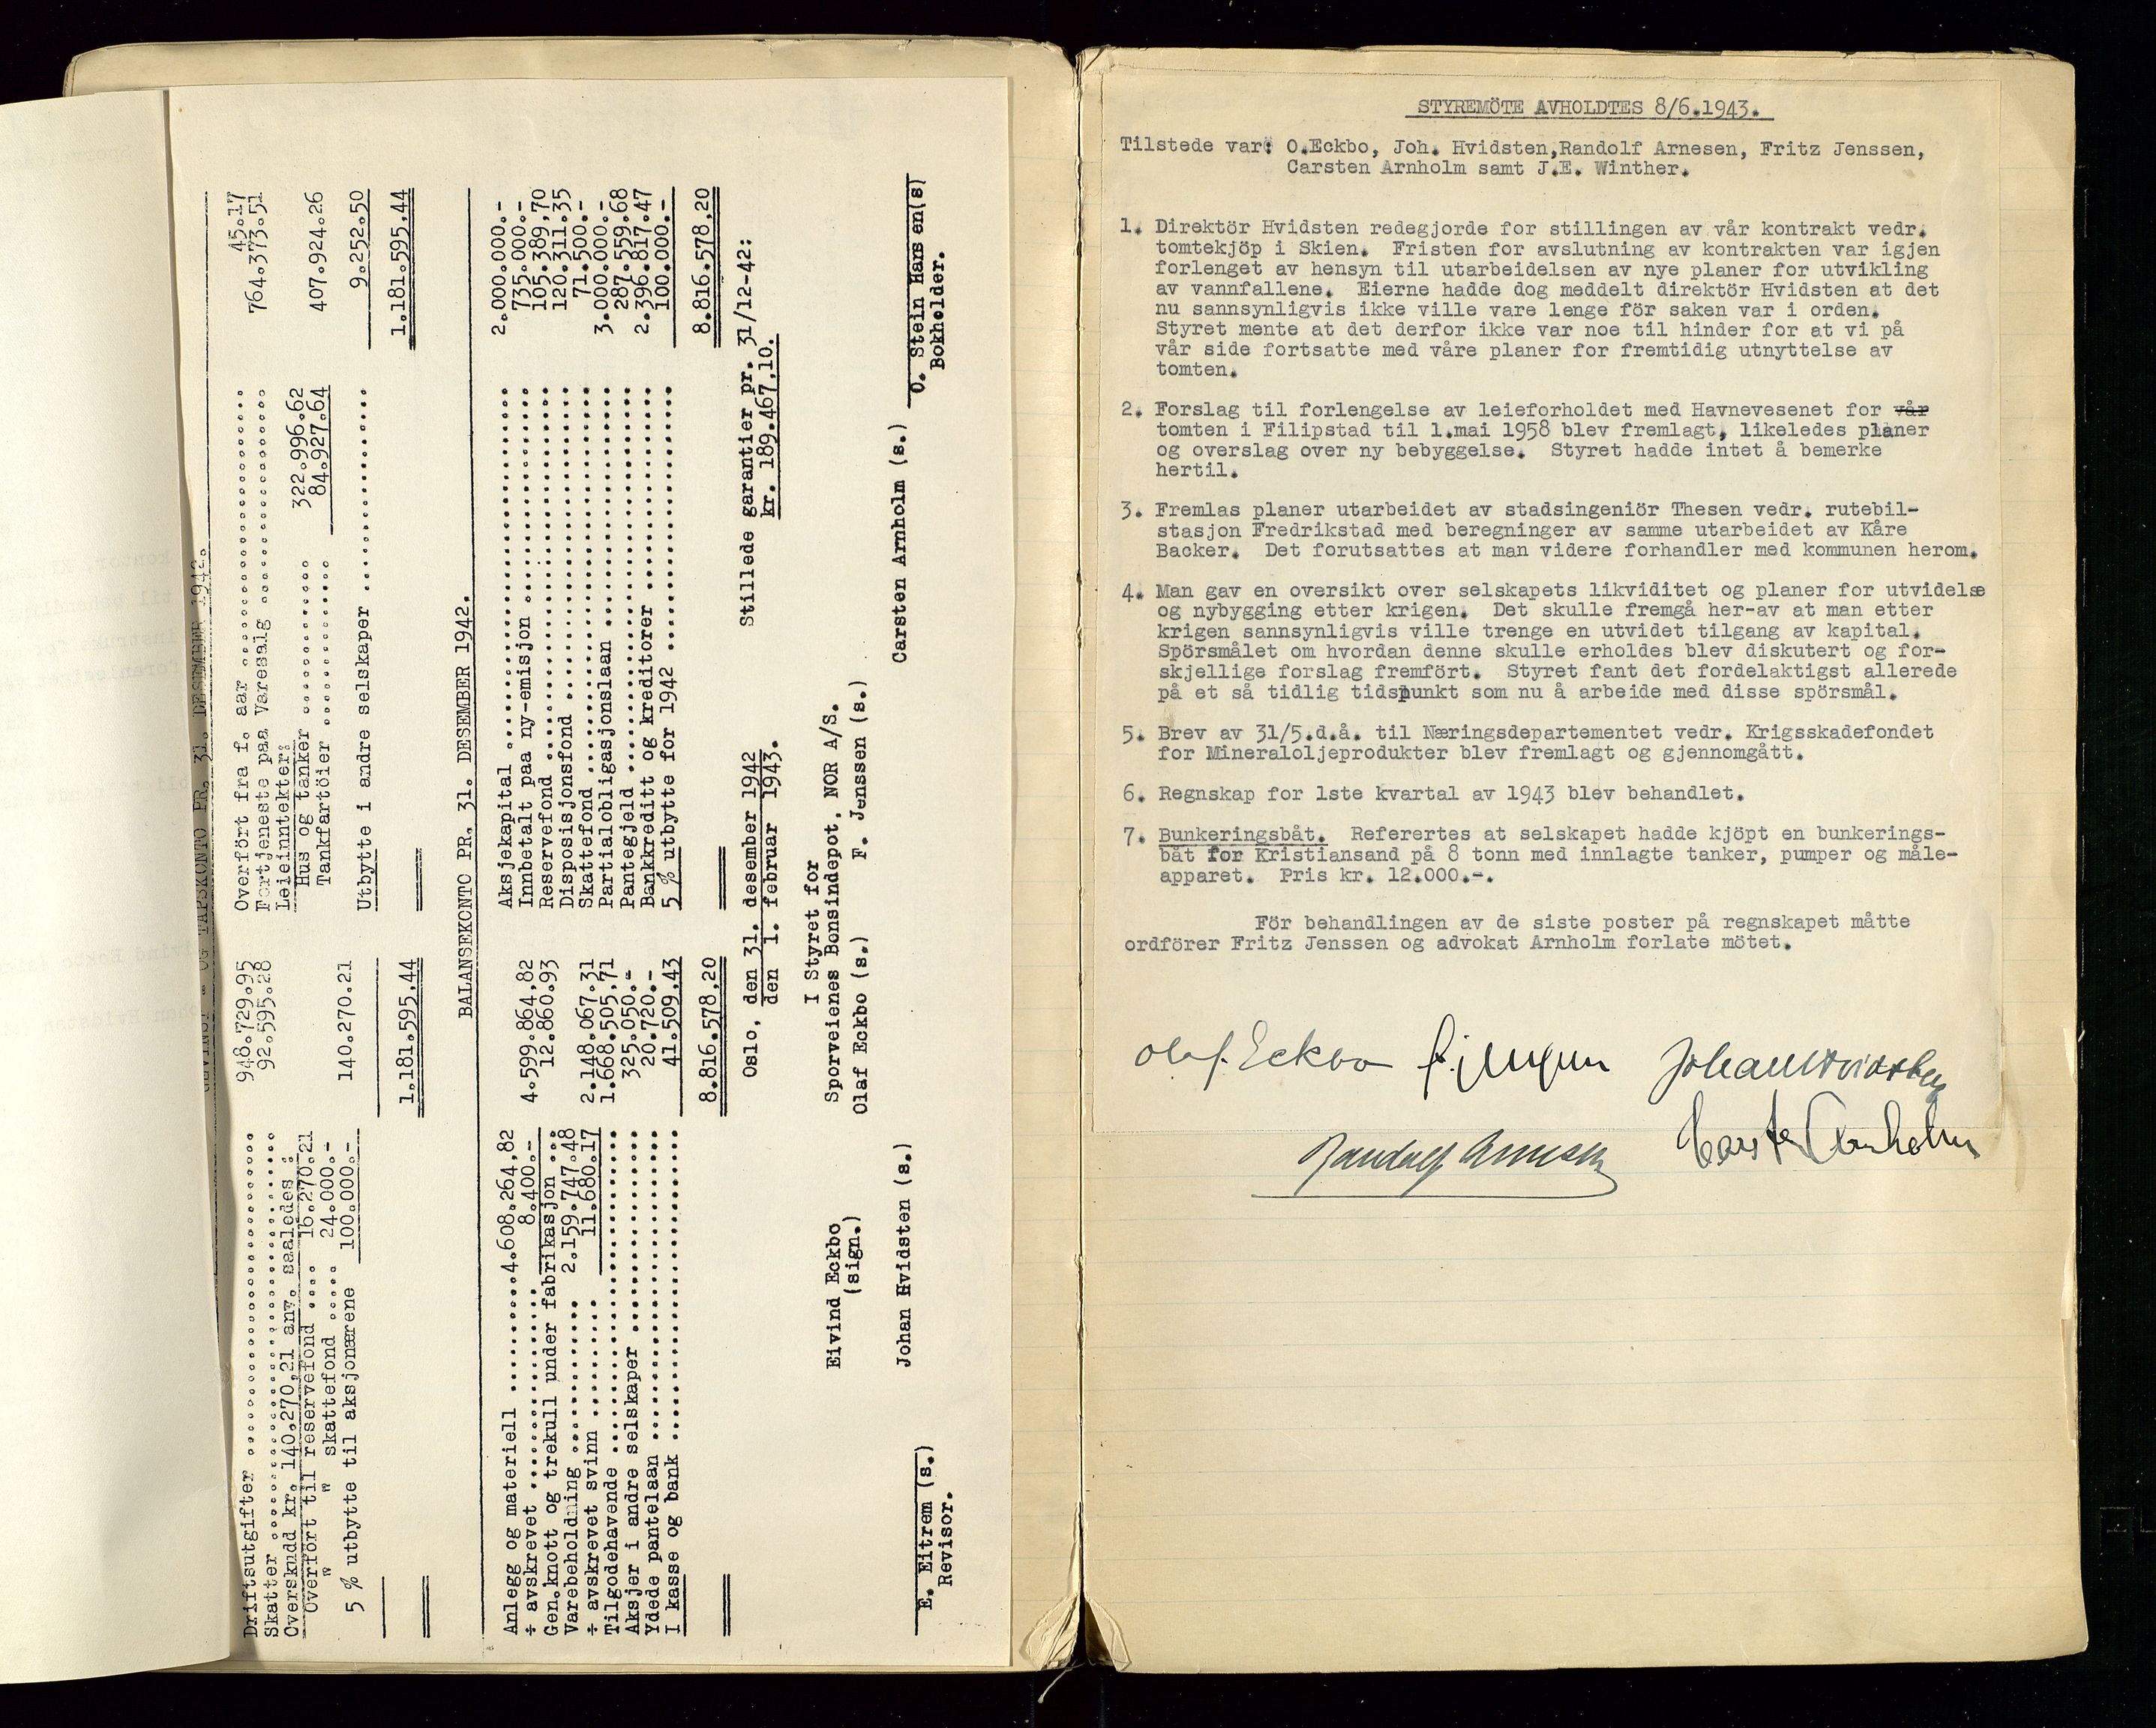 GEVINST - OG TAPSKONTO PR. 31. DESEMBER 1942.
Driftsutgifter .......... 948.729.95
Skatter .......... 92.595.28
Overskudd kr. 140.270,21 anv. saaledes :
Overfört til reservefond .... 16.270.21
" " skattefond ..... 24.000.-
5 % utbytte til aksjonærene 100.000.-
140.270.21
1.181.595,44
Overfört fra f. aar .......... 45.17
Fortjeneste paa varesalg .......... 764.373.51
Leieinntekter:
Hus og tanker .......... 322.996.62
Tankfartöier .......... 84.927.64
407.924.26
Utbytte i andre selskaper .......... 9.252.50
1.181.595,44
BALANSEKONTO PR. 31. DESEMBER 1942.
Anlegg og materiell ..........4.608.264,82
÷ avskrevet .......... 8.400.-
4.599.864,82
Gen.knott og trekull under fabrikasjon ... 12.860.93
Varebeholdning .......... 2.159.747.48
÷ avskrevet svinn .......... 11.680.17
2.148.067.31
Tilgodehavende .......... 1.668.505,71
Aksjer i andre selskaper .......... 325.050.-
Ydede pantelaan .......... 20.720.-
I kasse og bank .......... 41.509,43
8.816.578,20
Aksjekapital .......... 2.000.000.-
Innbetalt paa ny-emisjon .......... 735.000.-
Reservefond .......... 105.389,70
Disposisjonsfond .......... 120.311.35
Skattefond .......... 71.500.-
Partialobligasjonslaan .......... 3.000.000.-
Pantegjeld .......... 287.559.68
Bankkreditt og kreditorer .......... 2.396.817.47
5 % utbytte for 1942 .......... 100.000.-
8.816.578,20
Stillede garantier pr. 31/12-42:
kr. 189.467,10.
Oslo, den 31. desember 1942
den 1. februar 1943.
I Styret for
Sporveienes Bensindepot, NOR A/S.
Eivind Eckbo
(sign.)
Olaf Eckbo (s.) F. Jenssen (s.)
Johan Hvidsten (s.) Carsten Arnholm (s.)
E. Eitrem (s.)
Revisor.
O. Stein Hansen(s)
Bokholder.
STYREMÖTE AVHOLDTES 8/6.1943.
Tilstede var: O.Eckbo, Joh. Hvidsten,Randolf Arnesen, Fritz Jenssen,
Carsten Arnholm samt J.E. Winther.
1. Direktör Hvidsten redegjorde for stillingen av vår kontrakt vedr.
tomtekjöp i Skien. Fristen for avslutning av kontrakten var igjen
forlenget av hensyn til utarbeidelsen av nye planer for utvikling
av vannfallene. Eierne hadde dog meddelt direktör Hvidsten at det
nu sannsynligvis ikke ville vare lenge för saken var i orden.
Styret mente at det derfor ikke var noe til hinder for at vi på
vår side fortsatte med våre planer for fremtidig utnyttelse av
tomten.
2. Forslag til forlengelse av leieforholdet med Havnevesenet for vår
tomten i Filipstad til 1.mai 1958 blev fremlagt, likeledes planer
og overslag over ny bebyggelse. Styret hadde intet å bemerke
hertil.
3. Fremlas planer utarbeidet av stadsingeniör Thesen vedr. rutebil-
stasjon Fredrikstad med beregninger av samme utarbeidet av Kåre
Backer. Det forutsattes at man videre forhandler med kommunen herom.
4. Man gav en oversikt over selskapets likviditet og planer for utvidelse
og nybygging etter krigen. Det skulle fremgå her-av at man etter
krigen sannsynligvis ville trenge en utvidet tilgang av kapital.
Spörsmålet om hvordan denne skulle erholdes blev diskutert og for-
skjellige forslag fremfört. Styret fant det fordelaktigst allerede
på et så tidlig tidspunkt som nu å arbeide med disse spörsmål.
5. Brev av 31/5.d.å. til Næringsdepartementet vedr. Krigsskadefondet
for Mineraloljeprodukter blev fremlagt og gjennomgått.
6. Regnskap for 1ste kvartal av 1943 blev behandlet.
7. Bunkeringsbåt. Referertes at selskapet hadde kjöpt en bunkerings-
båt for Kristiansand på 8 tonn med innlagte tanker, pumper og måle-
apparet. Pris kr. 12.000.-.
För behandlingen av de siste poster på regnskapet måtte
ordförer Fritz Jenssen og advokat Arnholm forlate mötet.
Olaf Eckbo F. Jenssen Johan Hvidsten
Randolf Arnesen Carsten Arnholm